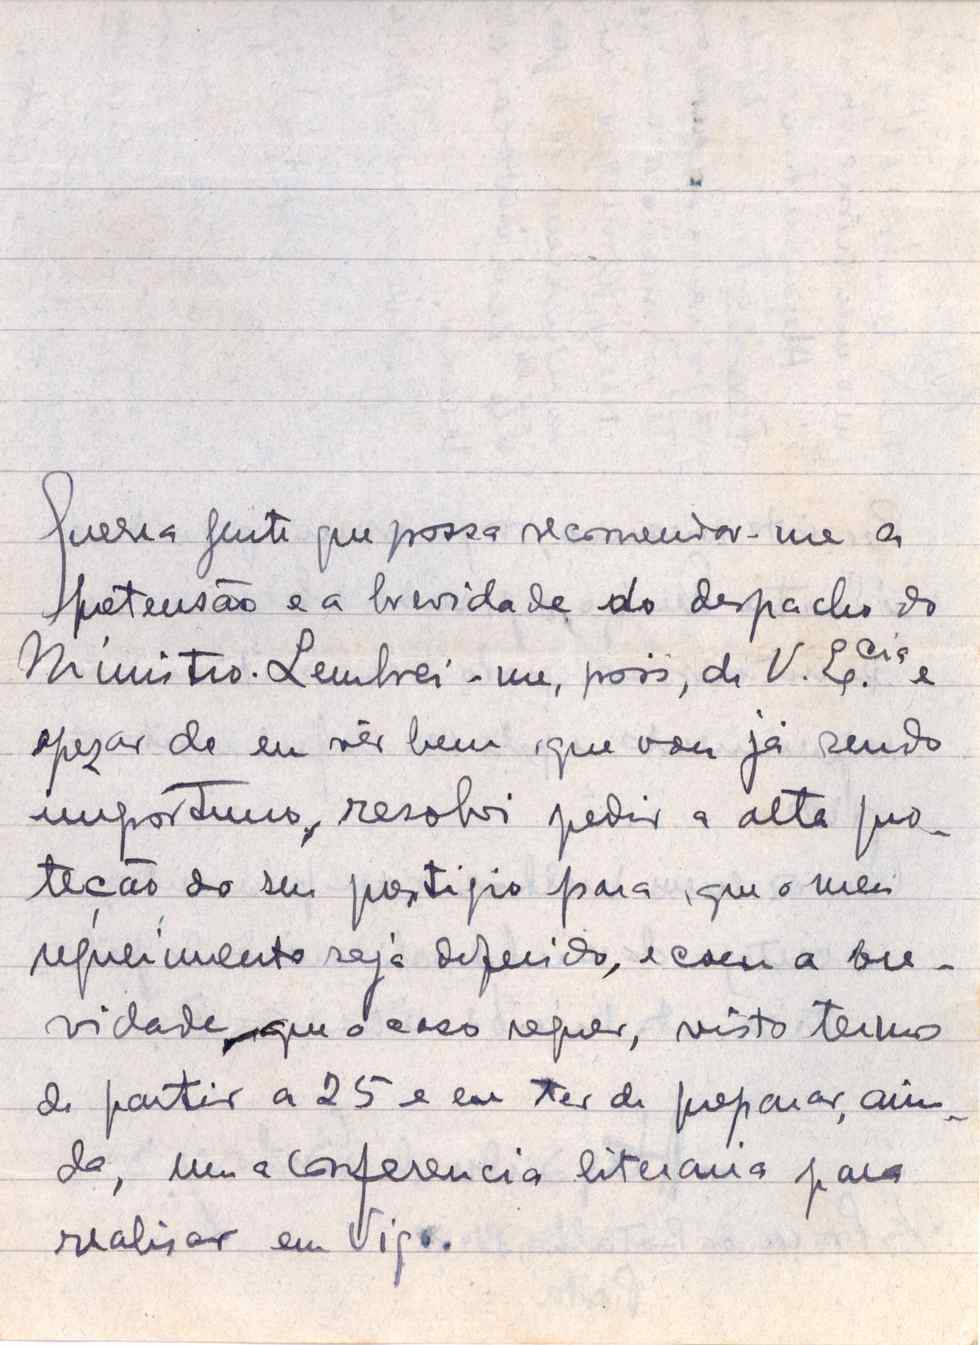 Queria gente que possa recomendar-me a
pretensão e a brevidade do despacho do
Ministro. Lembrei-me, pois, de V. Ex.cia e
apezar de eu vêr bem que vou já sendo
importuno, resolvi pedir a alta pro-
teção do seu prestigio para que o meu
requerimento seja deferido, e com a bre-
vidade que o caso requer, visto termos
de partir a 25 e eu ter de preparar, ain-
da, uma conferencia literaria para
realisar em Vigo.